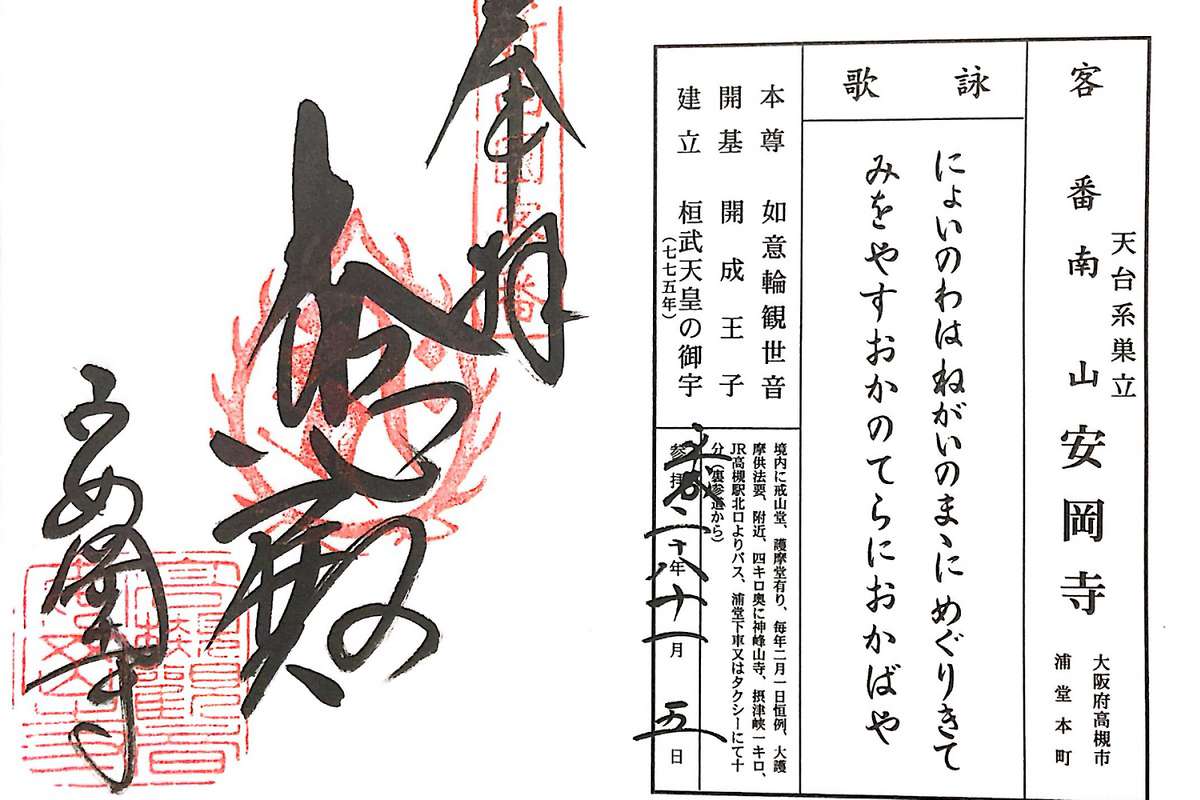 客番 南山安岡寺
天台系巣立
大阪府高槻市
浦堂本町
詠歌
にょいのわはねがいのまゝにめぐりきて
みをやすおかのてらにおかばや
本尊 如意輪観世音
開基 開成王子
建立 桓武天皇の御宇
(七七五年)
境内に戒山堂、護摩堂有り、毎年二月一日恒例、大護
摩供法要、附近、四キロ奥に神峰山寺、摂津峡一キロ、
JR高槻駅北口よりバス、浦堂下車又はタクシーにて十
分(裏参道から)
参拝 平成二十八年十一月五日
奉拝
大悲殿
安岡寺